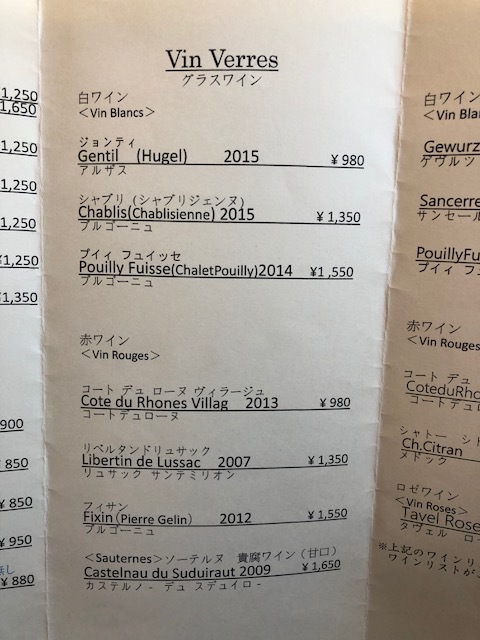 ¥1,250
1,650
¥1,250
¥1,250
¥1,250
¥1,250
¥1,350
900
¥ 850
¥ 850
¥ 950
¥ 880
Vin Verres
グラスワイン
白ワイン
<Vin Blancs>
ジョンティ
Gentil (Hugel) 2015 ¥ 980
アルザス
シャブリ (シャブリジェンヌ)
Chablis(Chablisienne) 2015 ¥ 1,350
ブルゴーニュ
プイィ フュイッセ
Pouilly Fuisse(ChaletPouilly)2014 ¥1 ,550
ブルゴーニュ
赤ワイン
<Vin Rouges>
コート デュ ローヌ ヴィラージュ
Cote du Rhones Villag 2013 ¥ 980
コートデュローヌ
リベルタンドリュサック
Libertin de Lussac 2007 ¥ 1,350
リュサック サンテミリオン
フィサン
Fixin(Pierre Gelin) 2012 ¥ 1,550
ブルゴーニュ
<Sauternes>ソーテルヌ 貴腐ワイン(甘口)
Castelnau du Suduiraut 2009 ¥ 1,650
カステルノ- デュ スデュイロ-
白ワイン
<Vin Bla
Gewurz
ゲヴルツ
Sancerre
サンセール
PouillyFu
プィィ フュ
赤ワイン
<Vin Rouges
コート デュ
CoteduRho
コートデュロ
シャトー シト
Ch.Citran
メドック
ロゼワイン
<Vin Roses>
Tavel Rose
タヴェル ロ
※上記のワインリ
ワインリストが